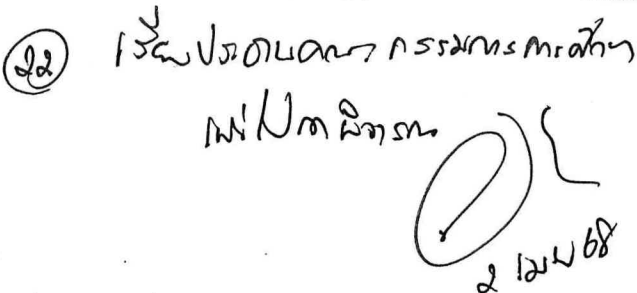 ๒๒
เรียน ประธานคณะกรรมการการศึกษา
เพื่อโปรดพิจารณา
๒ เมย ๖๘